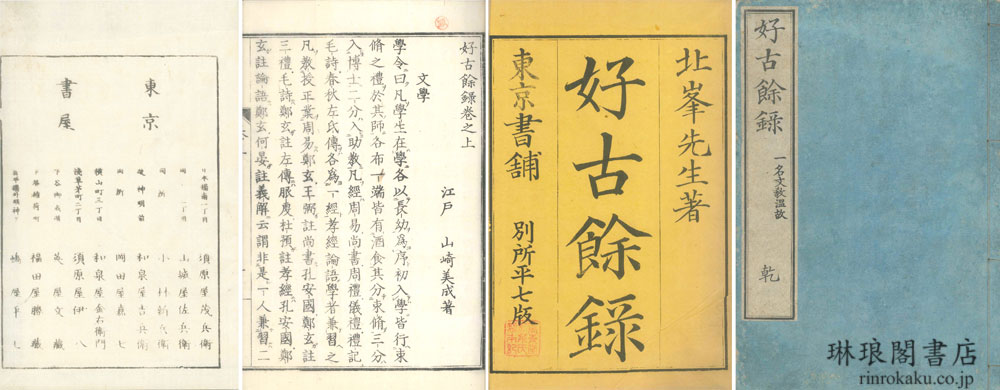 好古餘録
一名文教温故
乾
琳琅閣書店
rinrokaku.co.jp
北峯先生著
好古餘録
東京書舗 別所平七版
好古餘録卷之上
文學
江戸 山崎美成著
學令曰凡學生在學各以長幼爲序初入學皆行束
脩之禮於其師各布一端皆有酒食其分束脩三分
入博士二分入助教凡經周易尚書周禮儀禮禮記
毛詩春秋左氏傳各爲一經孝經論語學者兼習之
凡教授正業周易鄭玄王弼註尚書孔安國鄭玄註
三禮毛詩鄭玄註左傳服虔杜預註孝經孔安國鄭
玄註論語鄭玄何晏註義解云謂非是一人兼習二
東京
書屋
日本橋南一丁目 須原屋茂兵衛
同 二丁目 山城屋佐兵衛
同所 小林新兵衛
芝神明前 和泉屋吉兵衛
同所 岡田屋嘉七
横山町三丁目 和泉屋金右衛門
浅草茅町二丁目 須原屋伊八
下谷御成道 英屋文藏
福田屋勝藏
屋平七